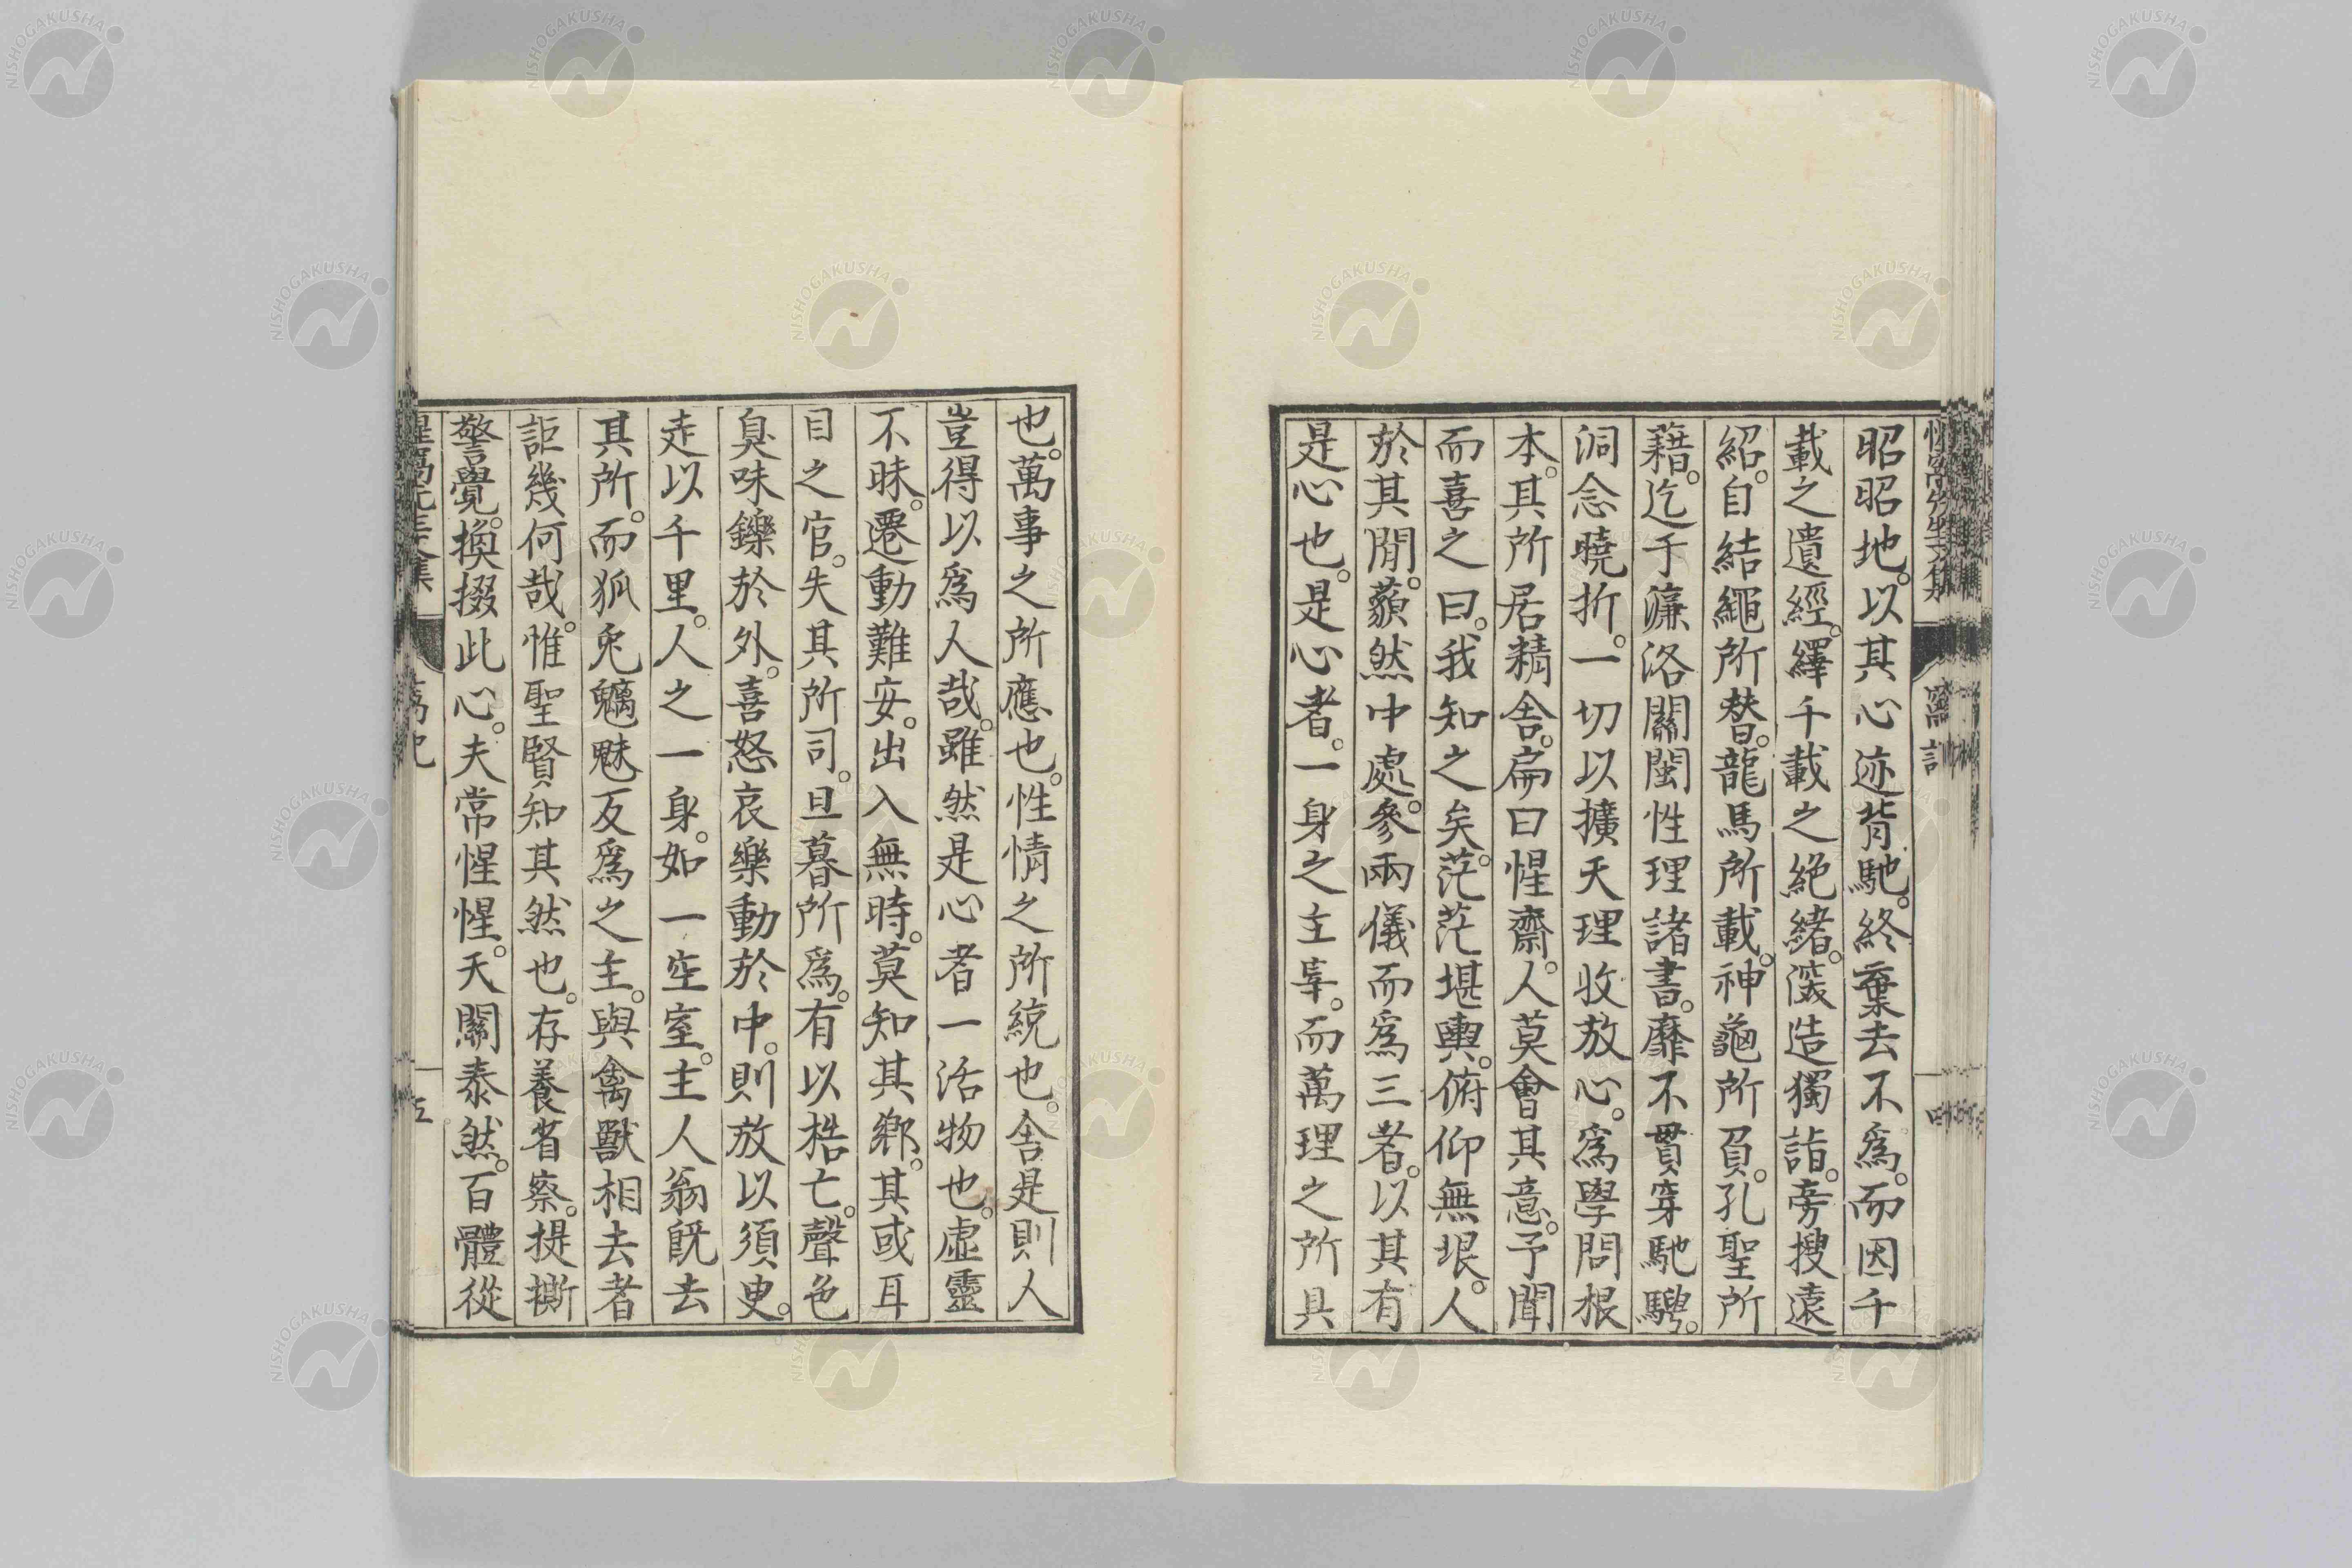 昭昭地。以其心迹背馳。終棄去不爲。而因千
載之遺經。繹千載之絶緒。深造獨詣。旁搜遠
紹。自結繩所替。龍馬所載。神龜所負。孔聖所
籍。迄于濂洛關閩性理諸書。靡不貫穿馳騁。
洞念曉折。一切以擴天理收放心。爲學問根
本。其所居精舍。扁曰惺齋。人莫會其意。予聞
而喜之曰。我知之矣。茫茫堪輿。俯仰無垠。人
於其閒。藐然中處。參兩儀而爲三者。以其有
是心也。是心者。一身之主宰。而萬理之所具
也。萬事之所應也。性情之所統也。舍是則人
豈得以爲人哉。雖然是心者一活物也。虛靈
不昧。遷動難安。出入無時。莫知其鄕。其或耳
目之官。失其所司。旦暮所爲。有以梏亡。聲色
臭味鑠於外。喜怒哀樂動於中。則放以須臾。
走以千里。人之一身。如一空室。主人翁旣去
其所。而狐兎魑魅反爲之主。與禽獸相去者
詎幾何哉。惟聖賢知其然也。存養省察。提撕
警覺。換掇此心。夫常惺惺。天關泰然。百體從